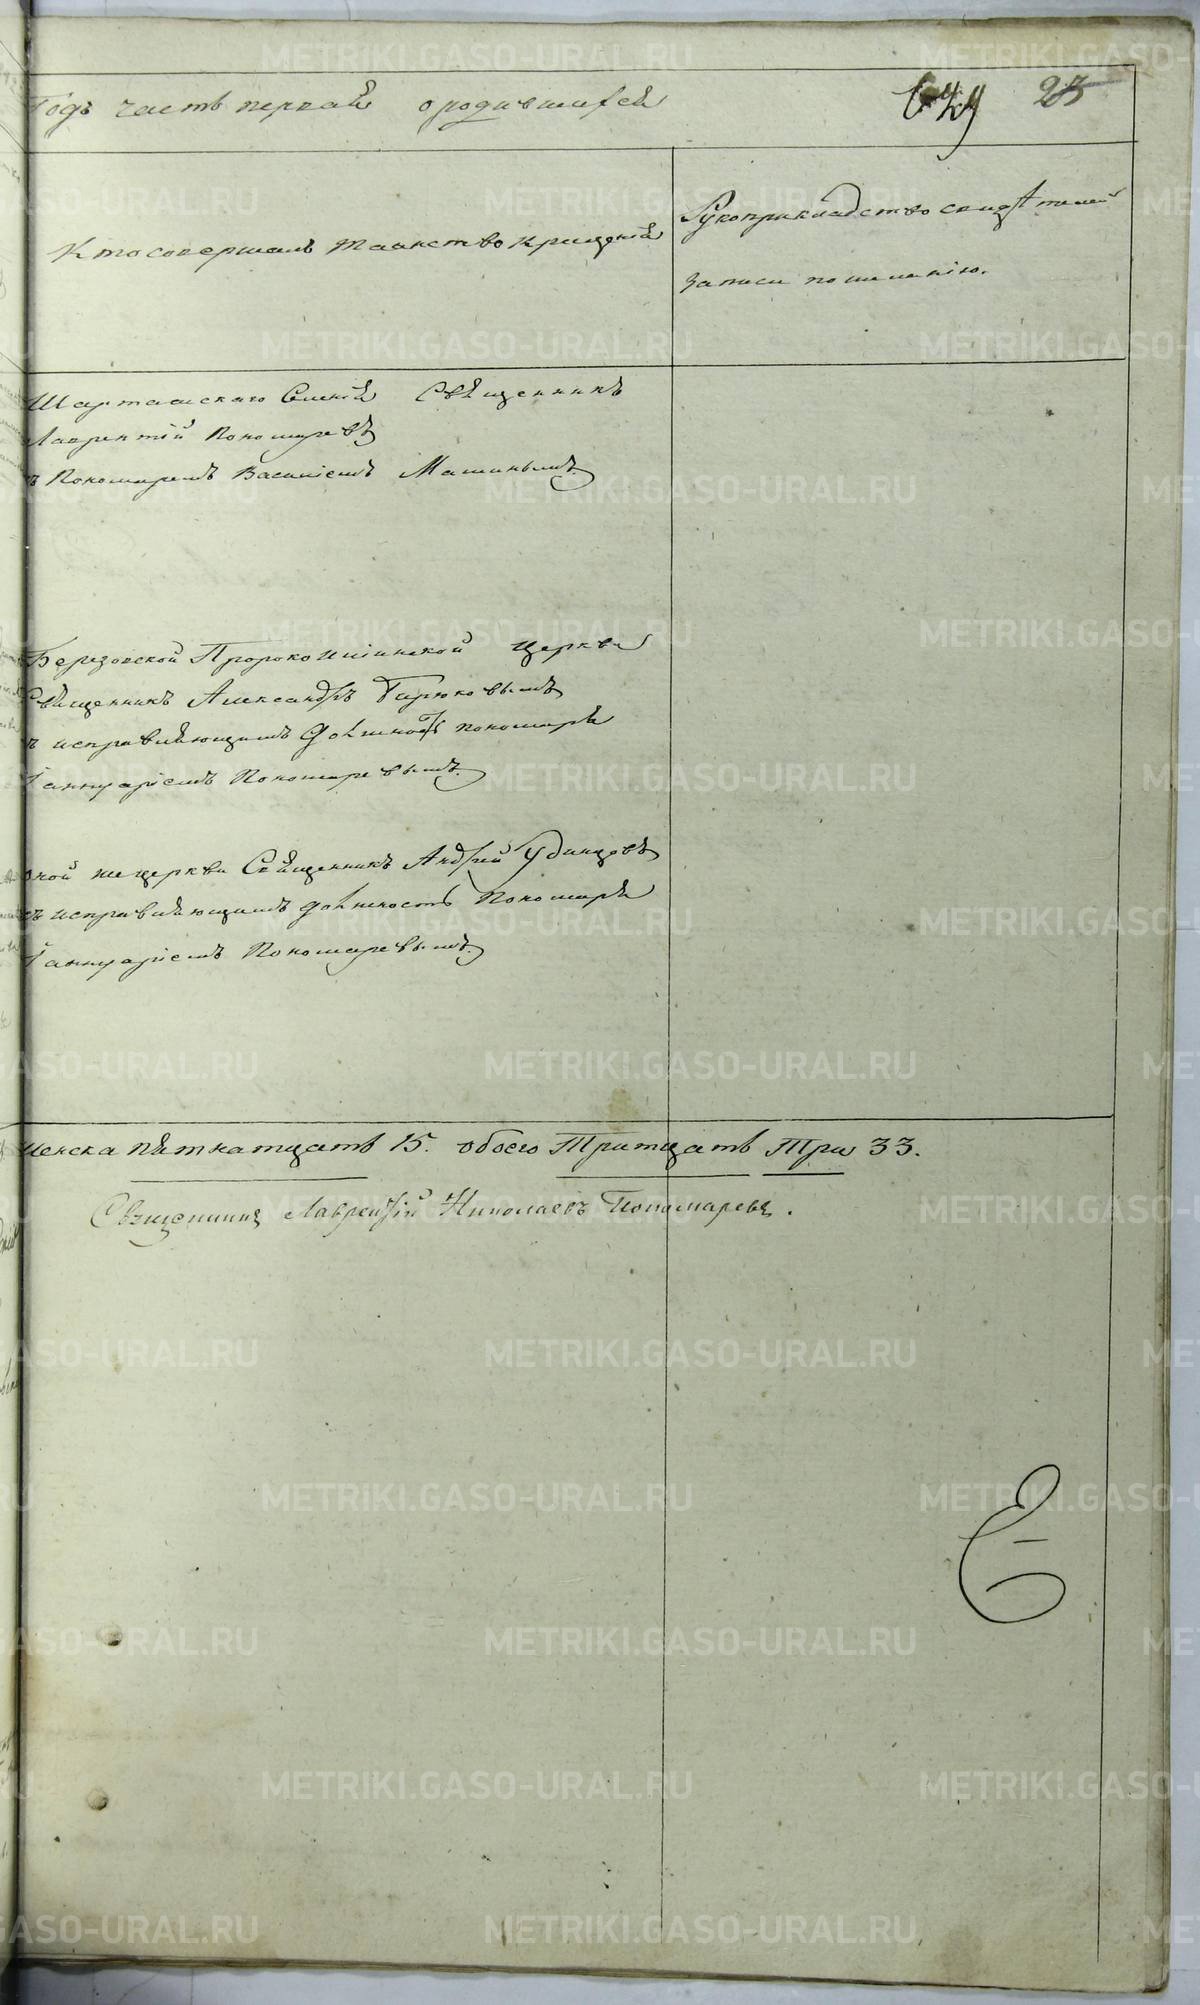 Годъ часть первая о родившихся
649 23
Кто совершалъ таинство крещенія
Рукоприкладство свидѣтелей
записи по желанію.
Шарташскаго Селенія Священникъ
Лаврентій Пономаревъ
съ Пономаремъ Василіемъ Машинымъ.
Березовской Пророкоилiинской церкви
Священникъ Александръ Бирюковымъ
съ исправляющимъ должность пономаря
Іаннуаріемъ Пономаревымъ.
оной же церкви Священникъ Андрей Удинцовъ
съ исправляющимъ должность Пономаря
Іаннуаріемъ Пономаревымъ.
женска пятнатцать 15. обоего Тритцать Три 33.
Священникъ Лаврентій Николаевъ Пономаревъ.